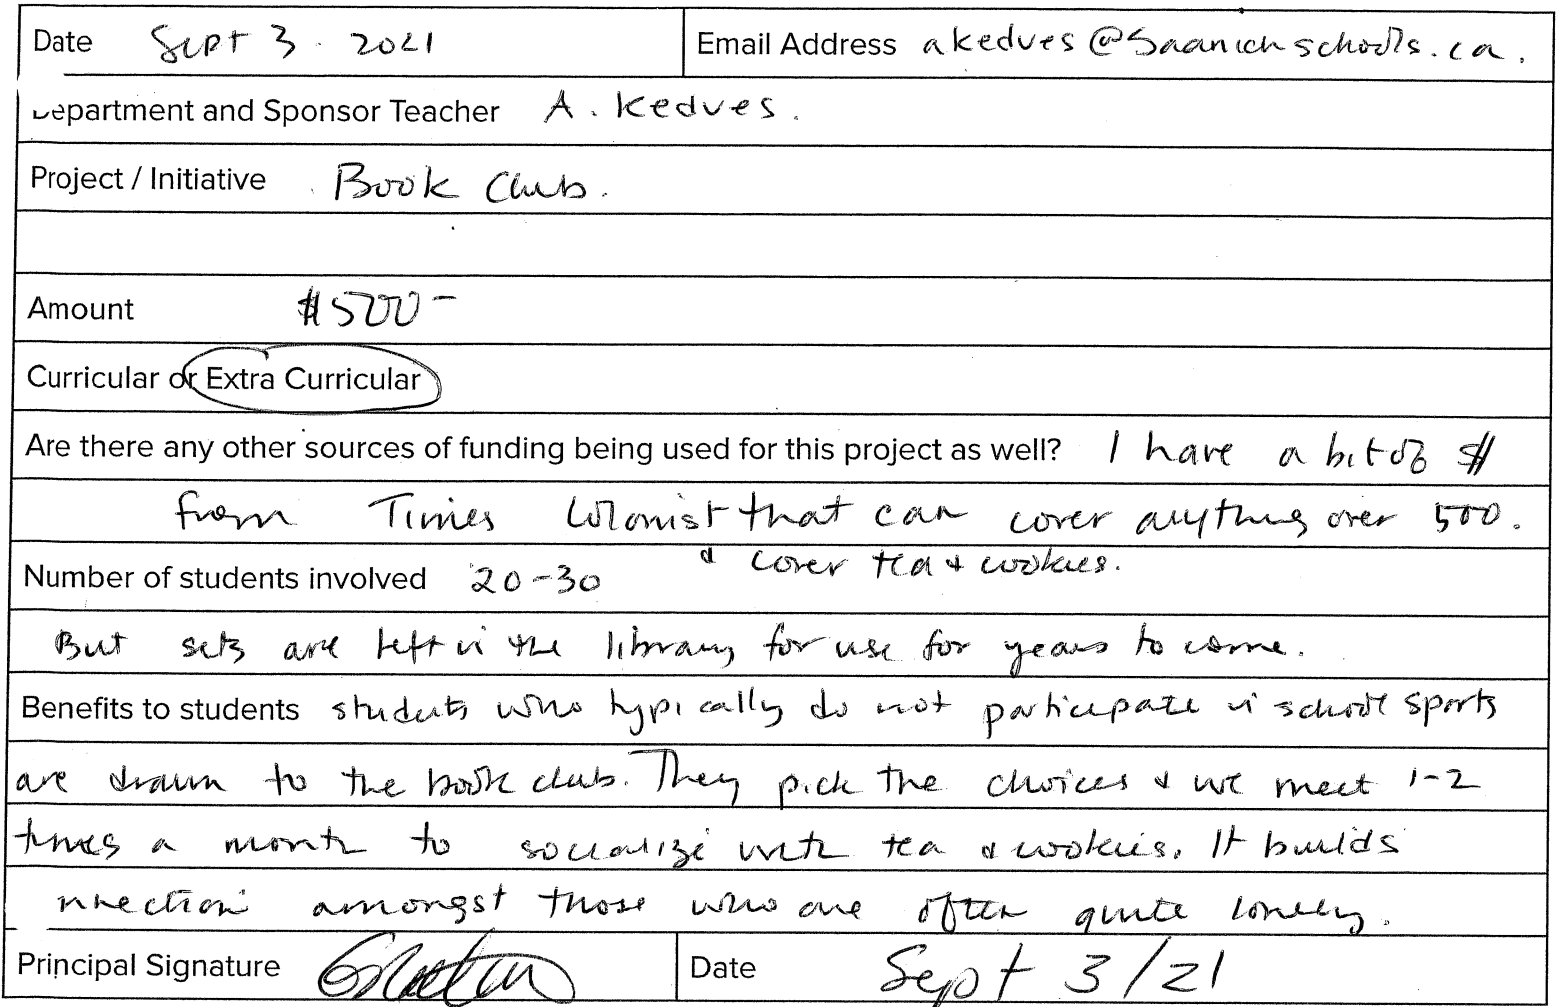 Date Sept 3. 2021 Email Address akedves@saanichschools.ca.
epartment and Sponsor Teacher A. Kedves.
Project / Initiative Book Club.
Amount $500-
Curricular or Extra Curricular
Are there any other sources of funding being used for this project as well? I have a bit of $
from Times Colonist that can cover anything over 500.
& cover tea & cookies.
Number of students involved 20-30
But sets are left in the library for use for years to come.
Benefits to students students who typically do not participate in school sports
are drawn to the book club. They pick the choices & we meet 1-2
times a month to socialize with tea & cookies. It builds
nnection amongst those who are often quite lonely.
Principal Signature Date Sept 3/21